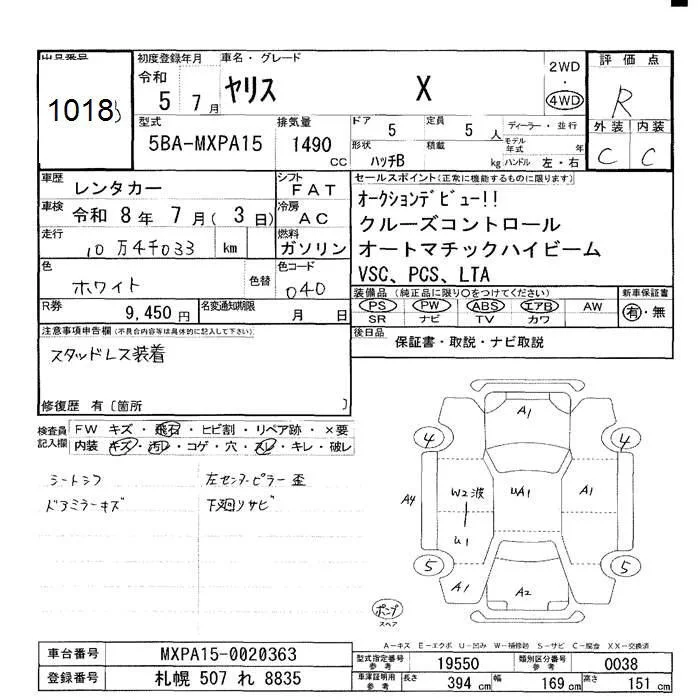 出品番号
10183
初度登録年月 車名・グレード
令和
5 年 7 月
ヤリス X
2WD
・
4WD
評価点
R
外装 内装
C C
型式
5BA-MXPA15
排気量
1490 CC
ドア 5
定員 5 人
形状 ハッチB
積載 kg
ディーラー・並行
モデル年式 年
ハンドル 左・右
車歴 レンタカー
車検 令和 8 年 7 月( 3 日)
走行 10万4千033 km
色 ホワイト 色替
シフト FAT
冷房 AC
燃料 ガソリン
色コード 040
セールスポイント(正常に機能するものに限ります)
オークションデビュー!!
クルーズコントロール
オートマチックハイビーム
VSC、PCS、LTA
R券 9,450円
名変通知期限 月 日
装備品(純正品に限り○をつけてください)
PS PW ABS エアB AW
SR ナビ TV カワ
新車保証書
有・無
後日品 保証書・取説・ナビ取説
注意事項申告欄(不具合内容等は具体的に記入して下さい)
スタッドレス装着
修復歴 有〔箇所 〕
検査員記入欄
FW キズ・飛石・ヒビ割・リペア跡・×要
内装 キズ・汚レ・コゲ・穴・スレ・キレ・破レ
シートスレ 左センターピラー歪
ドアミラーキズ 下廻りサビ
A1
4 4
A4 W2波 UA1 A1
U1
5 5
A1 A2
ポンプ
スペア
A-キズ E-エクボ U-凹み W-補修跡 S-サビ C-腐食 XX-交換済
車台番号 MXPA15-0020363
登録番号 札幌 507 れ 8835
型式指定番号 参考 19550
類別区分番号 参考 0038
車庫証明用 参考 長さ 394 cm 幅 169 cm 高さ 151 cm